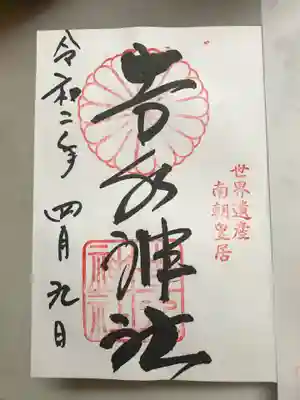 世界遺産
南朝皇居
吉水神社
令和二年
四月九日